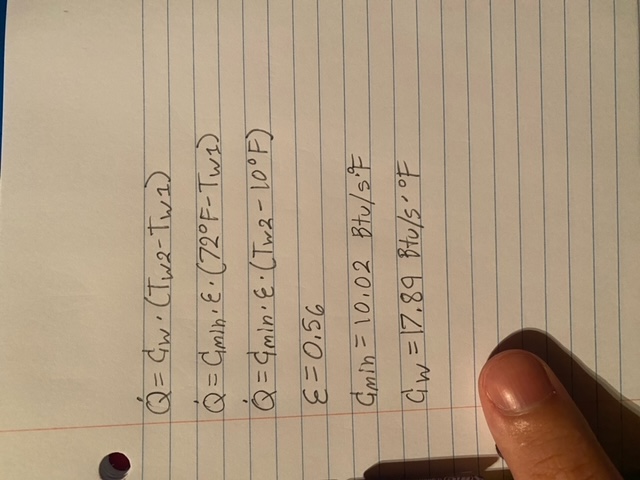 Q̇ = Ċw · (Tw2 - Tw1)
Q̇ = Ċmin · ε · (72°F - Tw1)
Q̇ = Ċmin · ε · (Tw2 - 10°F)
ε = 0.56
Ċmin = 10.02 Btu/s·°F
Ċw = 17.89 Btu/s·°F